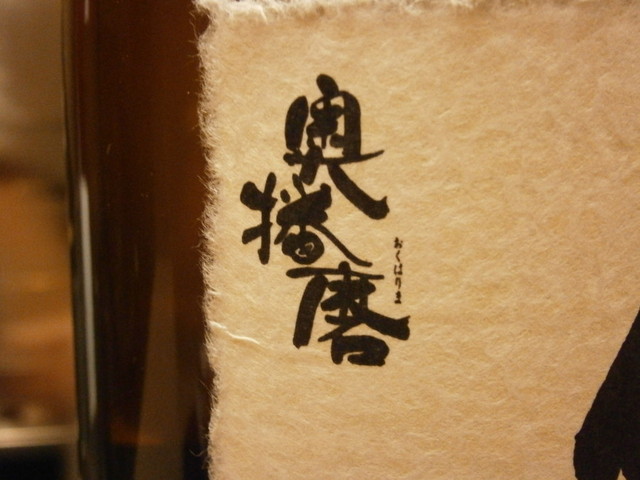 奥播磨
おくはりま